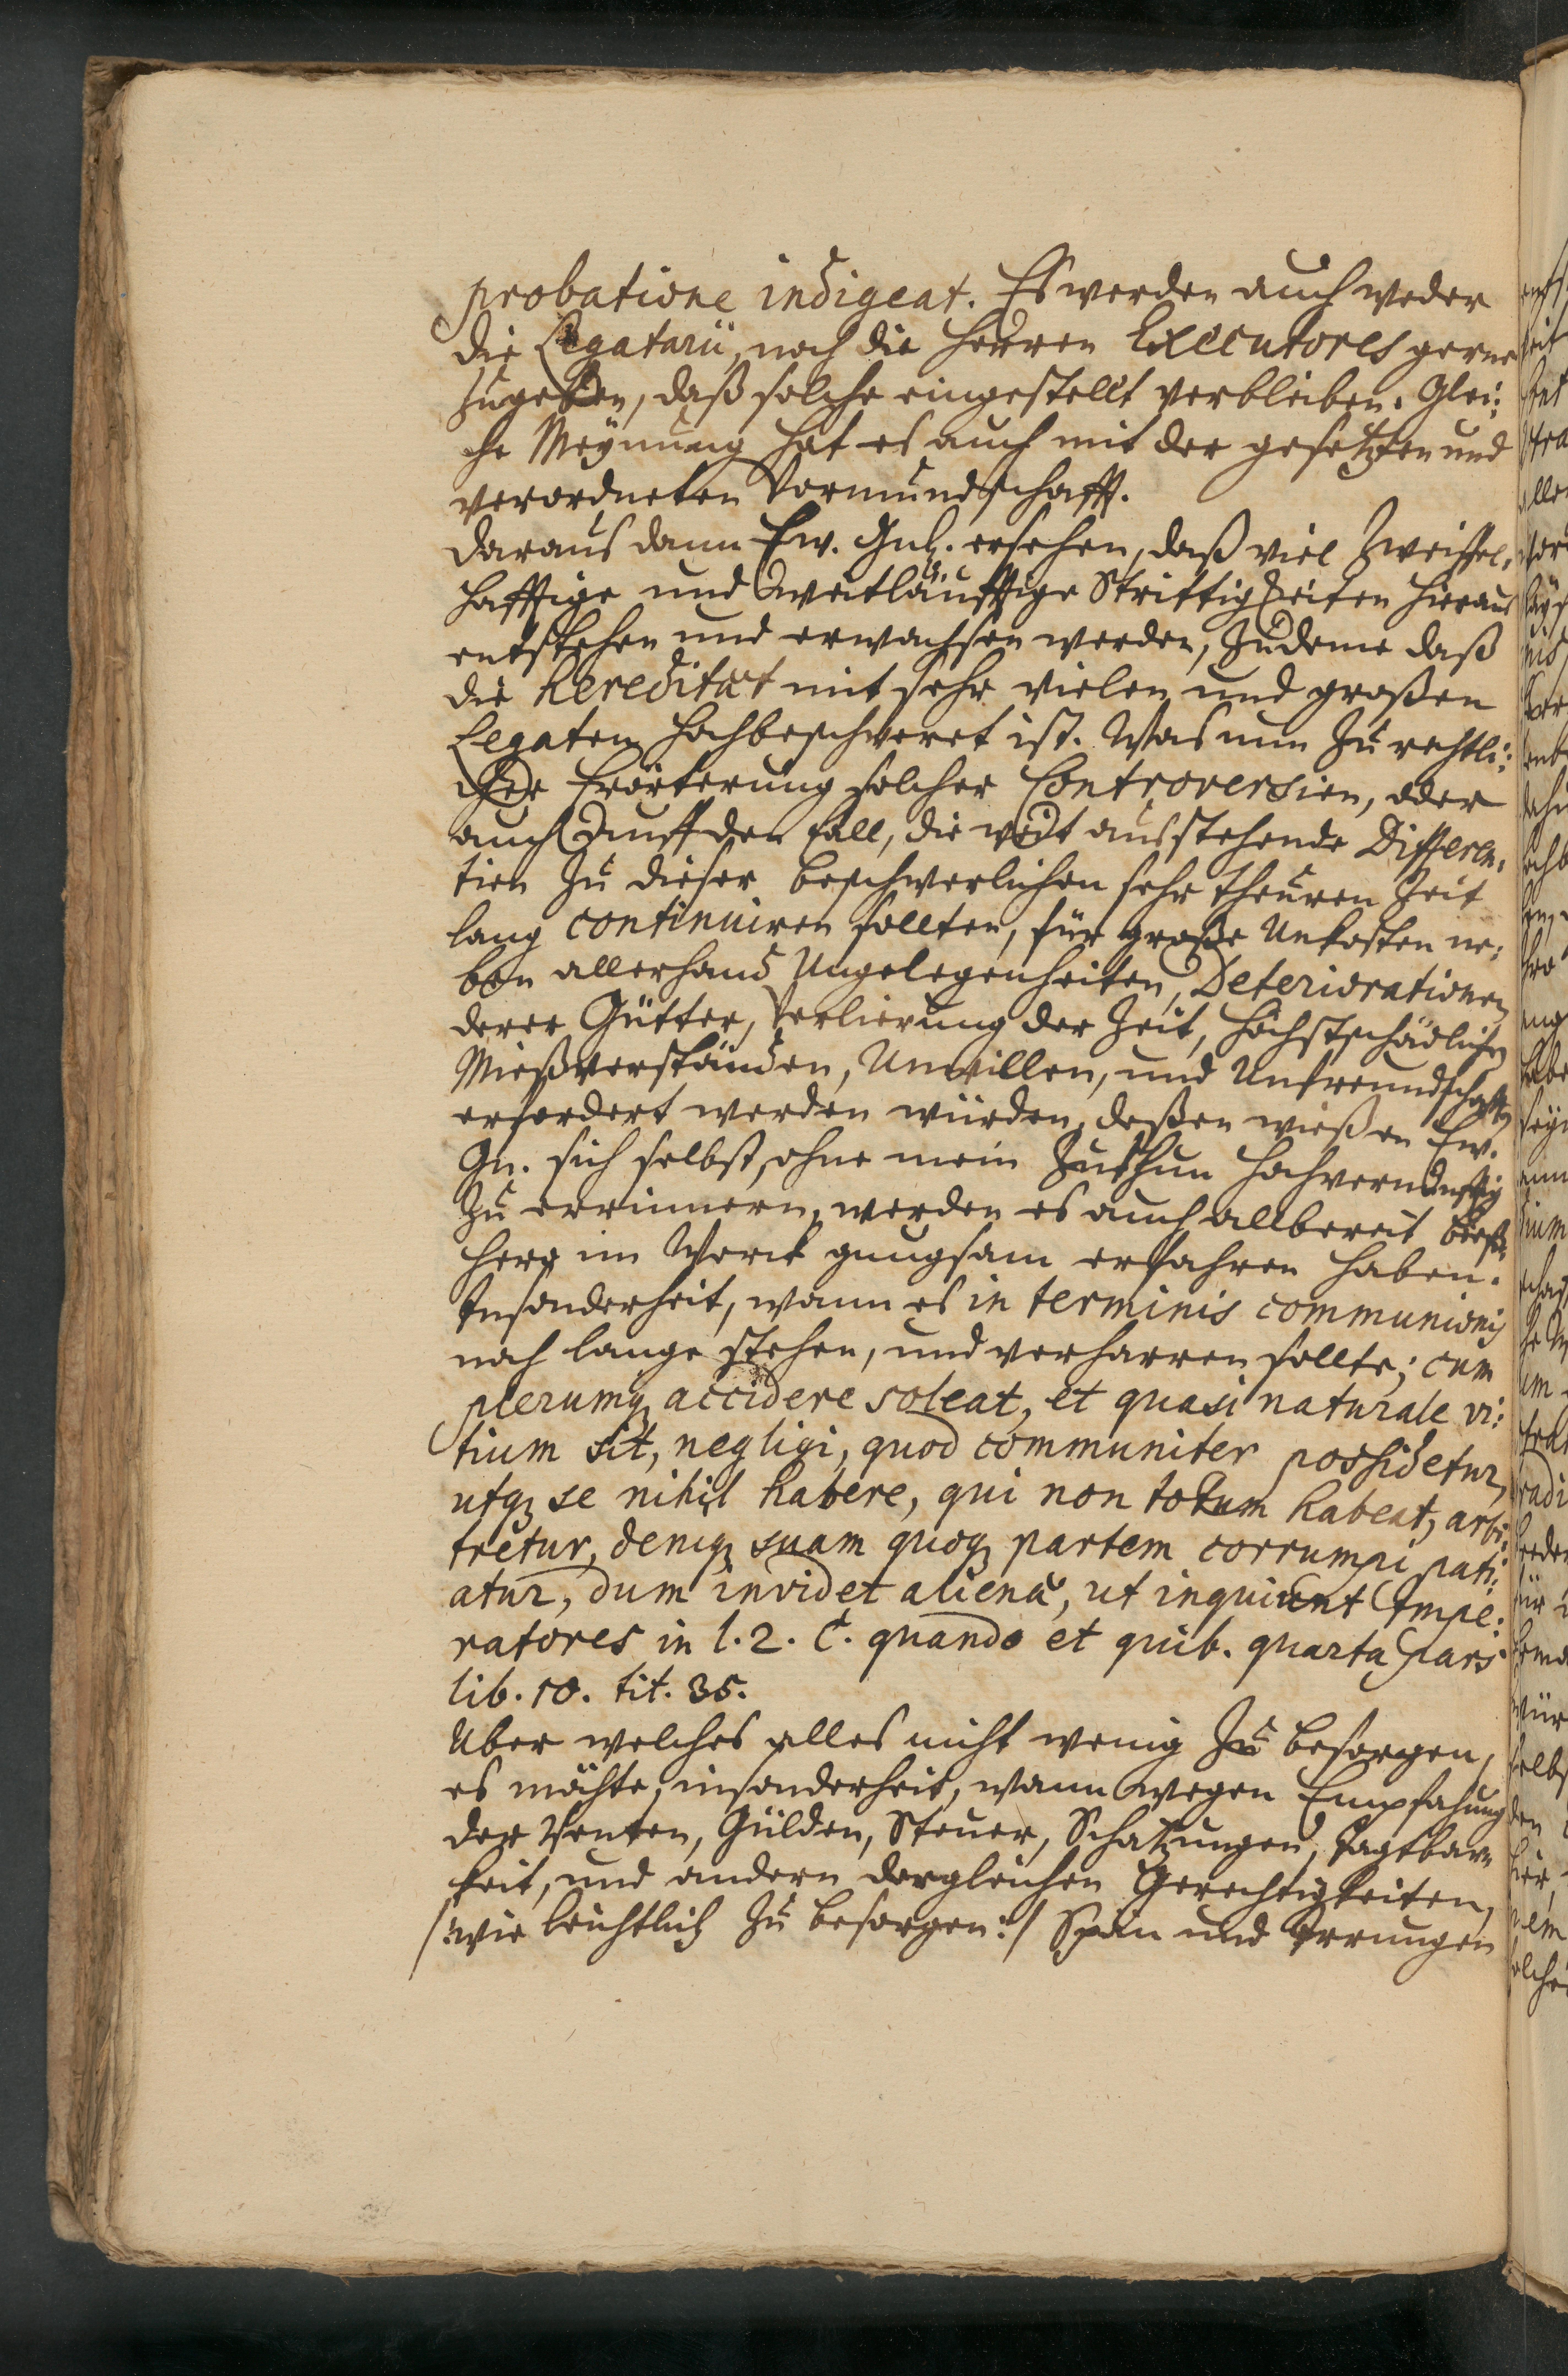 probatione indigeat. Es werden auch weder
die Legatarii, noch die Herren Executores gerne
zugeben, daß solche eingestellt verbleiben. Glei:
che Meynung hat es auch mit der gesetzten und
verordneten Vormundschafft.
Daraus dann Ew. Gnd. ersehen, daß viel Zweiffel,
hafftige und weitläufftige Strittigkeiten hieraus
entstehen und erwachsen werden, zudeme daß
die hereditat mit sehr vielen und großen
Legaten hochbeschweret ist. Was nun zu rechtli:
cher Erörterung solcher Controversien, oder
auch auff den fall, die weit ausstehende Differen,
tien zu dieser beschwerlichen sehr theuren Zeit
lang continuiren sollten, für große Unkosten ne:
ben allerhand Ungelegenheiten, Deteriorationen
derer Gütter, Verlierung der Zeit, höchstschädlichen
Mießverständen, Unwillen, und Unfreundschafften
erfordert werden würden, deßen wießen Ew.
Gn. sich selbst, ohne mein Zuthun hochvernünfftig
zu errinnern, werden es auch allbereit bieß,
hero im Werck gnugsam erfahren haben.
Insonderheit, wann es in terminis communionis
noch lange stehen, und verharren sollte; cum
plerumq; accidere soleat, et quasi naturale vi:
tium sit, negligi, quod communiter possidetur,
utq; se nihil habere, qui non totum habeat, arbi:
tretur, deniq; suam quoq; partem corrumpi pati:
atur, dum invidet alienae, ut inquiunt Impe:
ratores in l. 2. C. quando et quib. quarta pars
lib. 10. tit. 35.
Uber welches alles nicht wenig zu besorgen,
es möchte, insonderheit, wann wegen Empfahung
der Renten, Gülden, Steuer, Schatzungen, Jagtbar,
keit, und andern dergleichen Gerechtigkeiten,
/: wie leichtlich zu besorgen :/ Spän und Irrungen